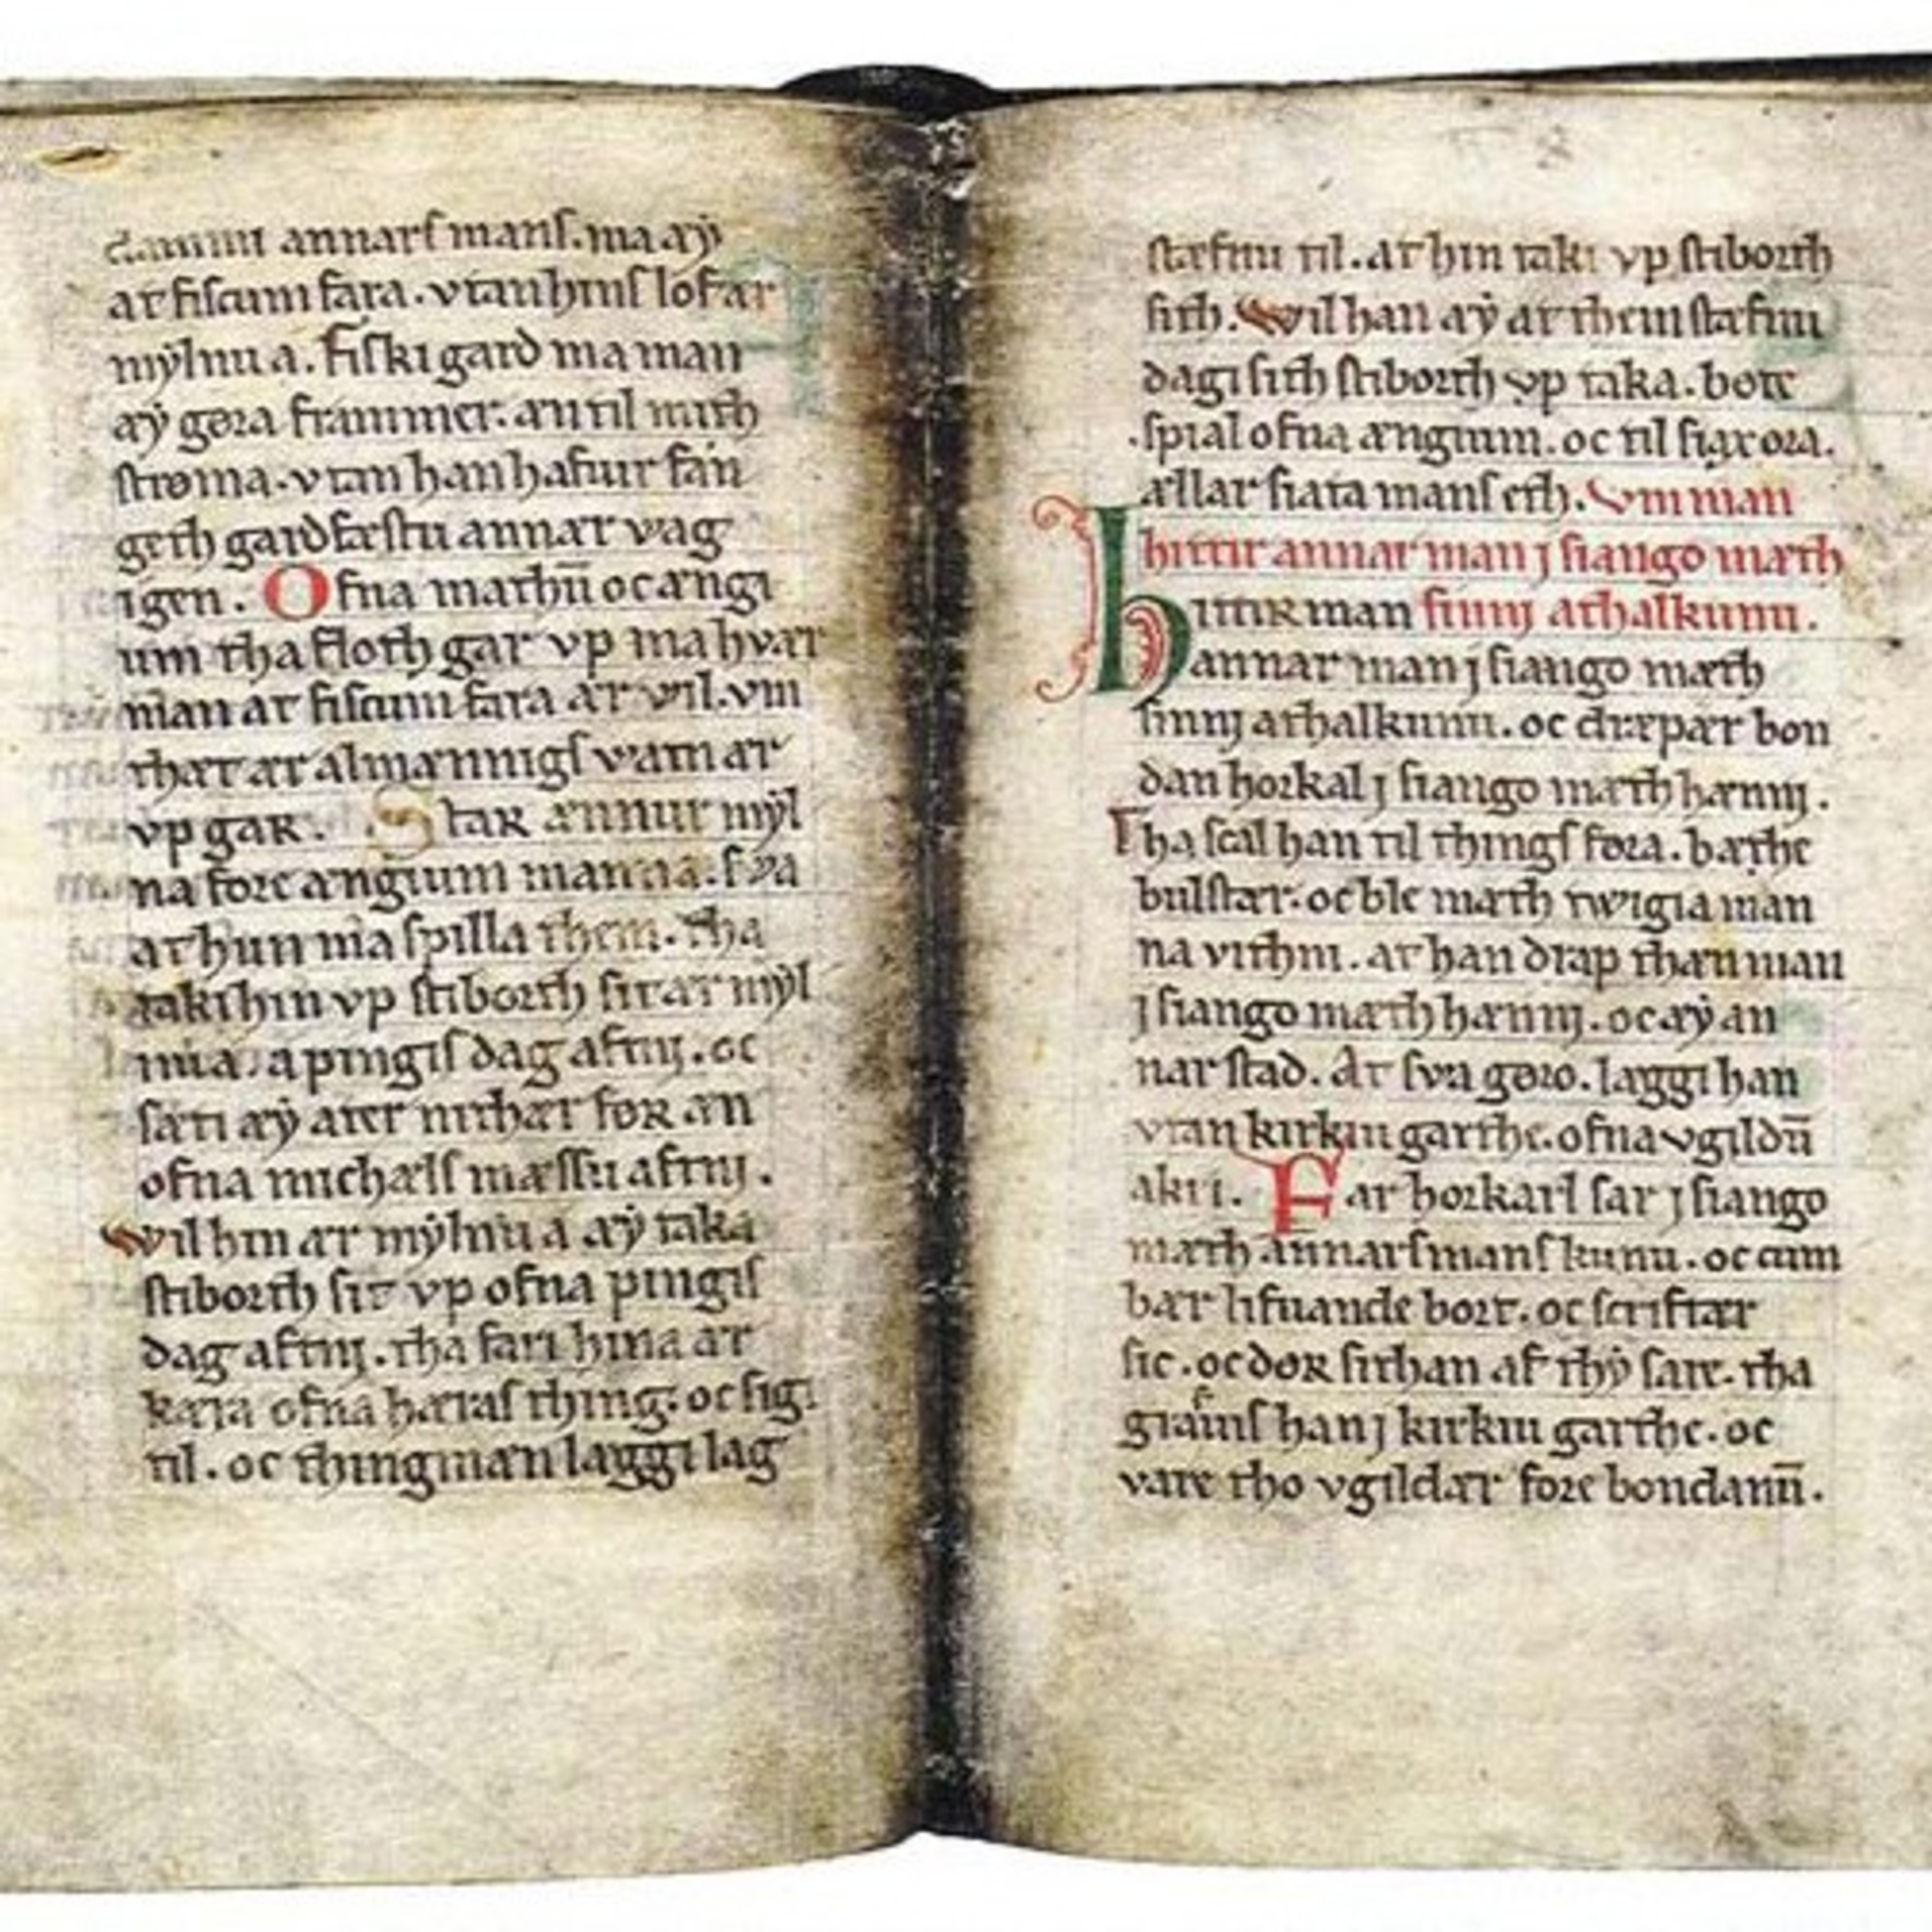 dammi annars mans. ma æy
at fiscum fara. vtan hins lof ær
mylnu a. Fiski gard ma man
æy gøra frammer. æn til mith
strøma. vtan han hafuir fan
geth gardfæstu annær vagh
igen. Ofna mathū oc ængi
um tha floth gar vp ma hvar
man at fiscum fara ær vil. vm
thær ær almænnigs vatn ær
vp gaR. StaR ænnur myl
na fore ængium manna. sva
at hun ma spilla them. Tha
taki hin vp stiborth sit ær myl
nu a. a pingis dag aftnj. oc
sæti æy ater nithær foR æn
ofna michæls mæssu aftnj.
Wil hin ær mylnu a æy taka
stiborth sit vp ofna pingis
dag aftnj. tha fari hina at
kæra ofna hæras thing. oc sigi
til. oc thingmæn læggi lag
stæfnu til. at hin taki vp stiborth
sith. Wil han æy at them stæfnu
dagi sith stiborth vp taka. bøte
spial ofna ængium. oc til siax ora.
ællar siata mans eth. Vm man
hittir annar man j siango mæth
HittiR man sinnj athalkunu.
annar man j siango mæth
sinnj athalkunu. oc dræpær bon
dan horkal j siango mæth hænnj.
Tha scal han til things føra. bæthe
bulstær. oc ble mæth twigia man
na vithni. at han drap thæn man
j siango mæth hænnj. oc æy an
nar stad. Ær sva gøro. læggi han
vtan kirkiu garthe. ofna vgildū
akri. Far horkarl sar j siango
mæth annars mans kunu. oc cum
bær lifuande bort. oc scriftær
sic. oc døR sithan af thy sare. tha
grafuis han j kirkiu garthe. oc
vare tho vgildær fore bondanū.